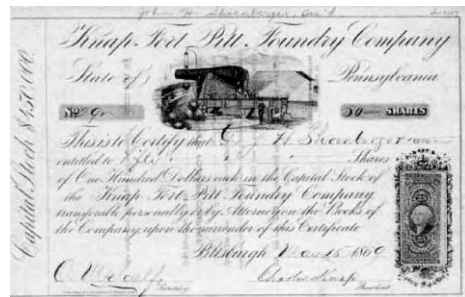 John H. Shoenberger
Knap Fort Pitt Foundry Company
State of Pennsylvania
No 9 50 SHARES
This is to Certify that J H Shoenberger
entitled to Fifty Shares
of One Hundred Dollars each in the Capital Stock of
the Knap Fort Pitt Foundry Company
transferable personally or by Attorney on the Books of
the Company upon the surrender of this Certificate
Pittsburgh May 15 1869
Charles Knap
Secretary President
Capital Stock $450,000